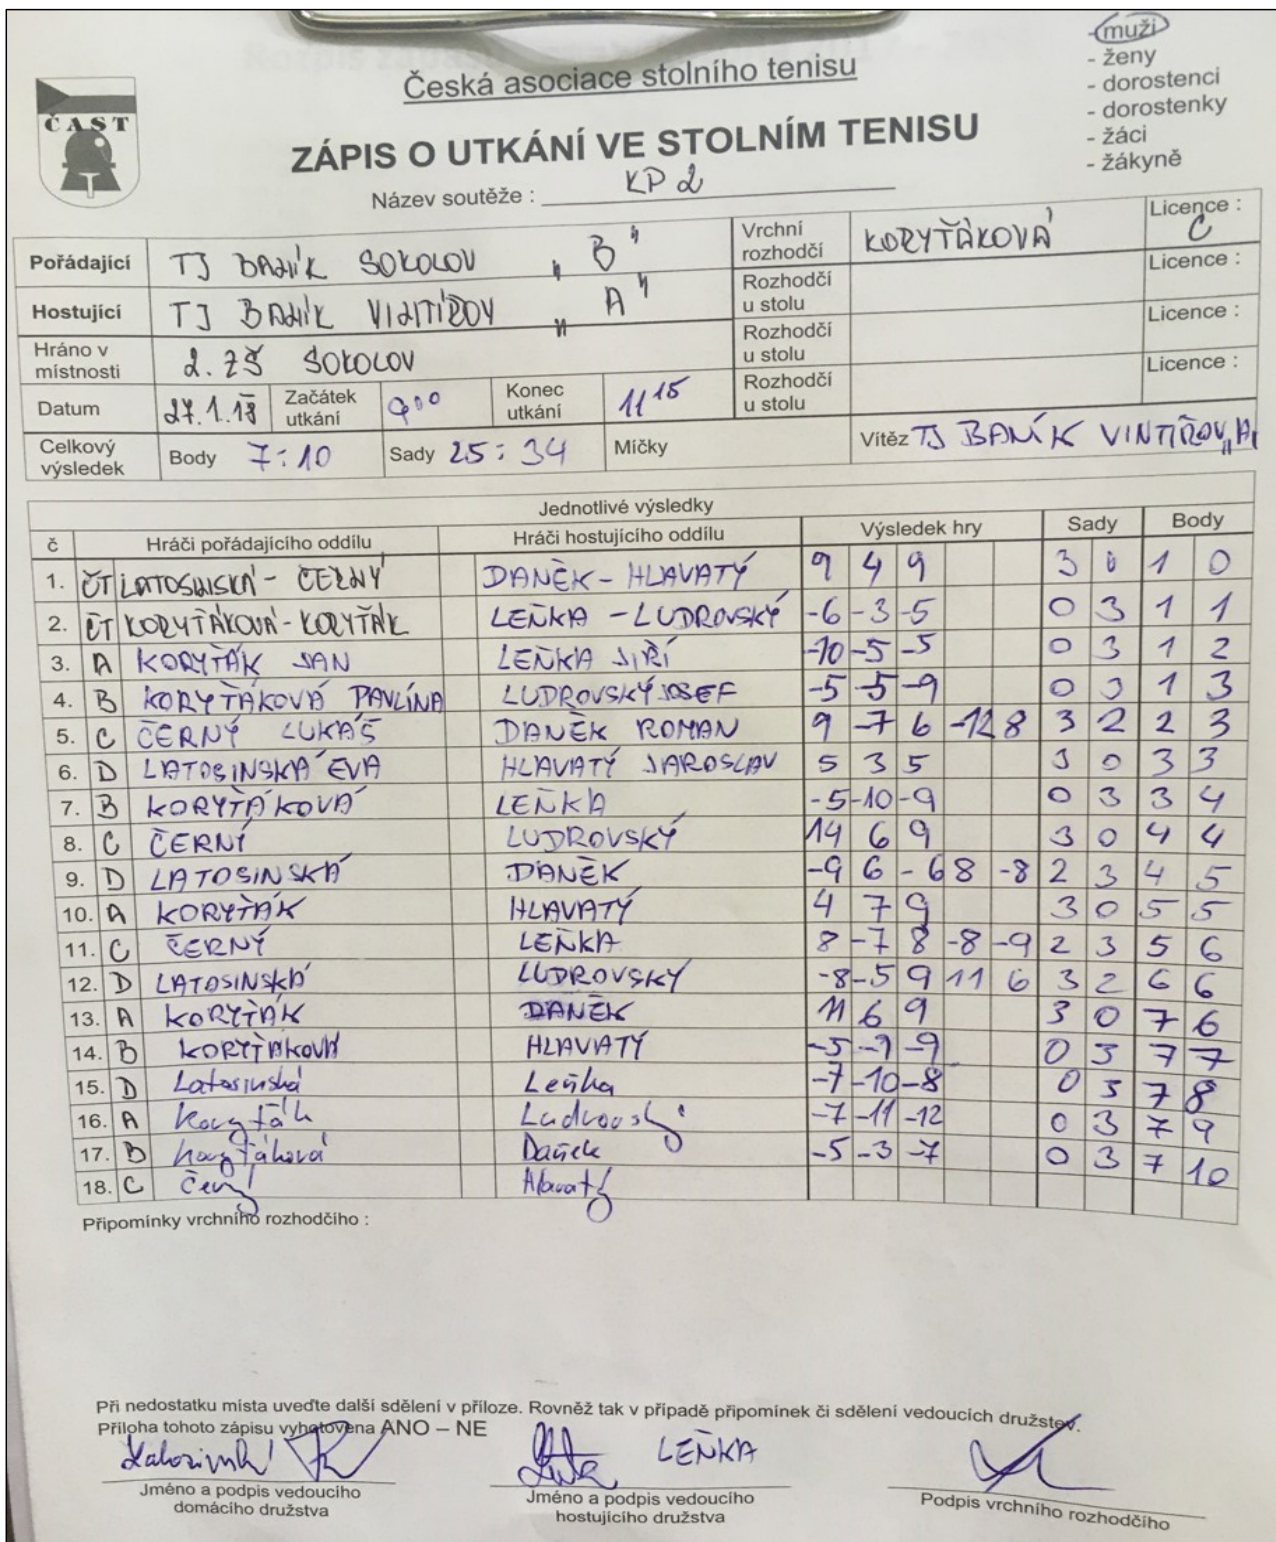 - muži
- ženy
- dorostenci
- dorostenky
- žáci
- žákyně
ČAST
Česká asociace stolního tenisu
ZÁPIS O UTKÁNÍ VE STOLNÍM TENISU
Název soutěže : KP 2
Pořádající TJ BANÍK SOKOLOV "B" Vrchní rozhodčí KORYŤÁKOVÁ Licence : C
Hostující TJ BANÍK VINTÍŘOV "A" Rozhodčí u stolu Licence :
Hráno v místnosti 2. ZŠ SOKOLOV Rozhodčí u stolu Licence :
Datum 27.1.18 Začátek utkání 9 00 Konec utkání 11 15 Rozhodčí u stolu Licence :
Celkový výsledek Body 7:10 Sady 25:34 Míčky Vítěz TJ BANÍK VINTÍŘOV "A"
Jednotlivé výsledky
č Hráči pořádajícího oddílu Hráči hostujícího oddílu Výsledek hry Sady Body
1. ČT LATOSINSKÁ - ČERNÝ DANĚK - HLAVATÝ 9 4 9 3 0 1 0
2. ČT KORYŤÁKOVÁ - KORYŤÁK LEŇKA - LUDROVSKÝ -6 -3 -5 0 3 1 1
3. A KORYŤÁK JAN LEŇKA JIŘÍ -10 -5 -5 0 3 1 2
4. B KORYŤÁKOVÁ PAVLÍNA LUDROVSKÝ JOSEF -5 -5 -9 0 3 1 3
5. C ČERNÝ LUKÁŠ DANĚK ROMAN 9 -7 6 -12 8 3 2 2 3
6. D LATOSINSKÁ EVA HLAVATÝ JAROSLAV 5 3 5 3 0 3 3
7. B KORYŤÁKOVÁ LEŇKA -5 -10 -9 0 3 3 4
8. C ČERNÝ LUDROVSKÝ 14 6 9 3 0 4 4
9. D LATOSINSKÁ DANĚK -9 6 -6 8 -8 2 3 4 5
10. A KORYŤÁK HLAVATÝ 4 7 9 3 0 5 5
11. C ČERNÝ LEŇKA 8 -7 8 -8 -9 2 3 5 6
12. D LATOSINSKÁ LUDROVSKÝ -8 -5 9 11 6 3 2 6 6
13. A KORYŤÁK DANĚK 11 6 9 3 0 7 6
14. B KORYŤÁKOVÁ HLAVATÝ -5 -9 -9 0 3 7 7
15. D Latosinská Leňka -7 -10 -8 0 3 7 8
16. A Koryťák Ludrovský -7 -11 -12 0 3 7 9
17. B Koryťáková Daněk -5 -3 -7 0 3 7 10
18. C Černý Hlavatý
Připomínky vrchního rozhodčího :
Při nedostatku místa uveďte další sdělení v příloze. Rovněž tak v případě připomínek či sdělení vedoucích družstev.
Příloha tohoto zápisu vyhotovena ANO – NE
Latosinská LEŇKA
Jméno a podpis vedoucího domácího družstva
Jméno a podpis vedoucího hostujícího družstva
Podpis vrchního rozhodčího